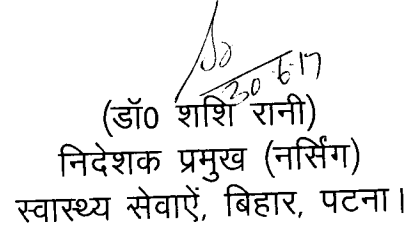 30.6.17
(डॉ0 शशि रानी)
निदेशक प्रमुख (नर्सिंग)
स्वास्थ्य सेवाऐं, बिहार, पटना।